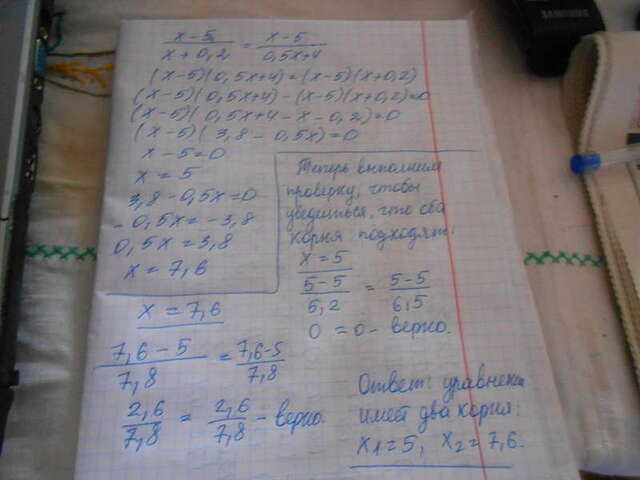 x-5/x+0,2 = x-5/0,5x+4
(x-5)(0,5x+4)=(x-5)(x+0,2)
(x-5)(0,5x+4)-(x-5)(x+0,2)=0
(x-5)(0,5x+4-x-0,2)=0
(x-5)(3,8-0,5x)=0
x-5=0
x=5
3,8-0,5x=0
-0,5x=-3,8
0,5x=3,8
x=7,6
Теперь выполним
проверку, чтобы
убедиться, что оба
корня подходят:
x=5
5-5/5,2 = 5-5/6,5
0=0- верно.
x=7,6
7,6-5/7,8 = 7,6-5/7,8
2,6/7,8 = 2,6/7,8 - верно.
Ответ: уравнение
имеет два корня:
x1=5, x2=7,6.
SAMSUNG